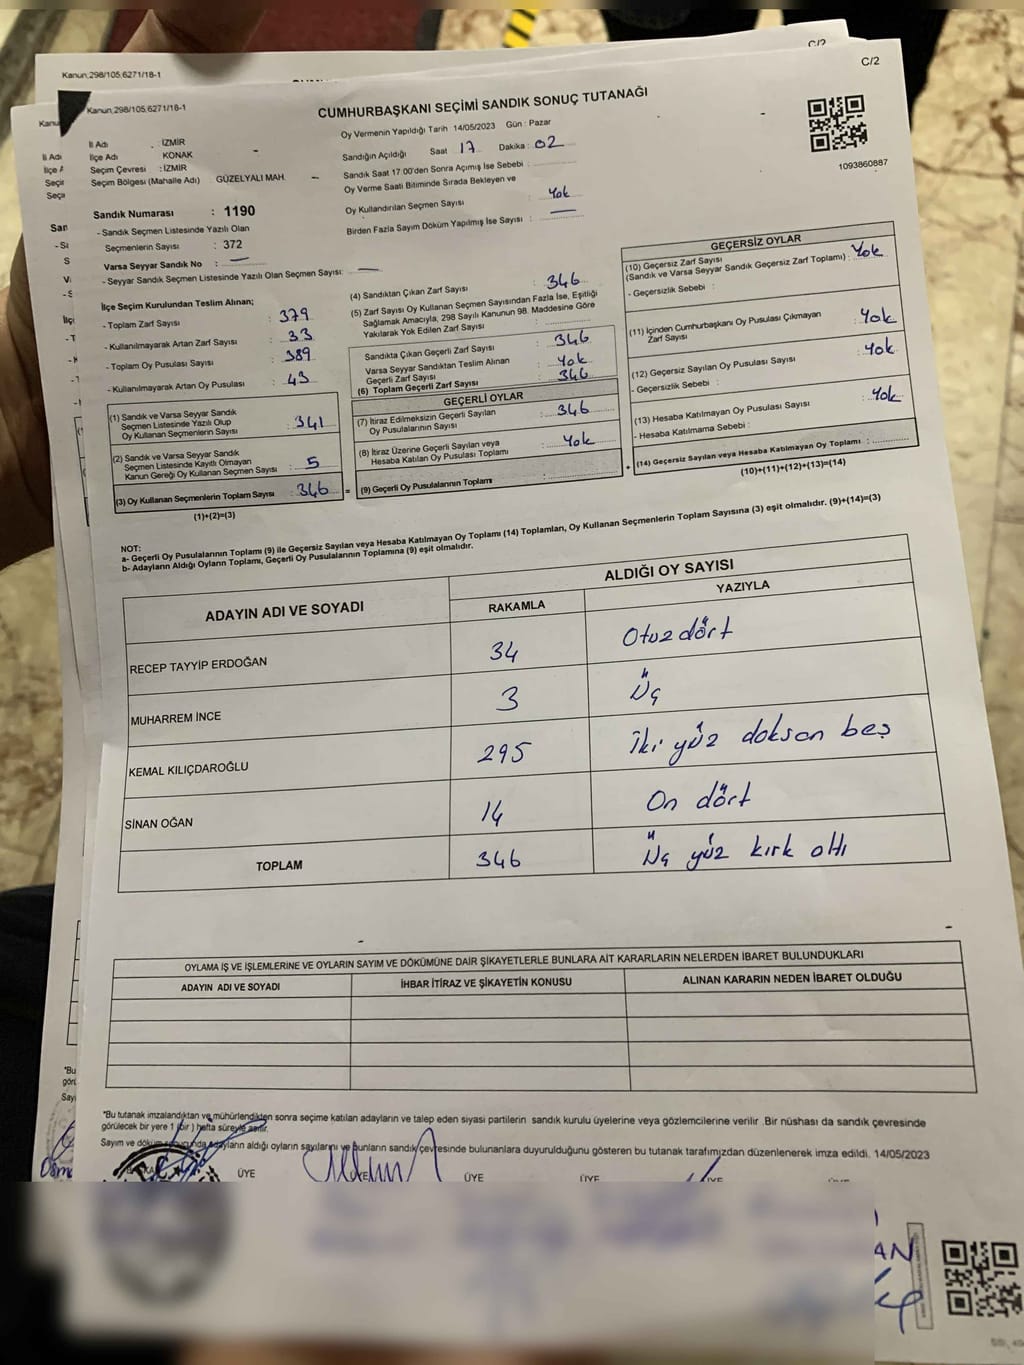 C/2
Kanun;298/105;6271/18-1
C/2
Kanun;298/105;6271/18-1
CUMHURBAŞKANI SEÇİMİ SANDIK SONUÇ TUTANAĞI
1093860887
İl Adı : İZMİR
İlçe Adı : KONAK
Seçim Çevresi : İZMİR
Seçim Bölgesi (Mahalle Adı) GÜZELYALI MAH.
Sandık Numarası : 1190
- Sandık Seçmen Listesinde Yazılı Olan
Seçmenlerin Sayısı : 372
Varsa Seyyar Sandık No : —
- Seyyar Sandık Seçmen Listesinde Yazılı Olan Seçmen Sayısı: —
Oy Vermenin Yapıldığı Tarih 14/05/2023 Gün : Pazar
Sandığın Açıldığı Saat 17 Dakika : 02
Sandık Saat 17 00'den Sonra Açımış İse Sebebi :
Oy Verme Saati Bitiminde Sırada Bekleyen ve
Oy Kullandırılan Seçmen Sayısı : Yok
Birden Fazla Sayım Döküm Yapılmış İse Sayısı : —
İlçe Seçim Kurulundan Teslim Alınan;
- Toplam Zarf Sayısı : 379
- Kullanılmayarak Artan Zarf Sayısı : 33
- Toplam Oy Pusulası Sayısı : 389
- Kullanılmayarak Artan Oy Pusulası : 43
(1) Sandık ve Varsa Seyyar Sandık
Seçmen Listesinde Yazılı Olup
Oy Kullanan Seçmenlerin Sayısı : 341
(2) Sandık ve Varsa Seyyar Sandık
Seçmen Listesinde Kayıtlı Olmayan
Kanun Gereği Oy Kullanan Seçmen Sayısı : 5
(3) Oy Kullanan Seçmenlerin Toplam Sayısı : 346 =
(1)+(2)=(3)
(4) Sandıktan Çıkan Zarf Sayısı : 346
(5) Zarf Sayısı Oy Kullanan Seçmen Sayısından Fazla İse, Eşitliği
Sağlamak Amacıyla, 298 Sayılı Kanunun 98. Maddesine Göre
Yakılarak Yok Edilen Zarf Sayısı :
Sandıkta Çıkan Geçerli Zarf Sayısı : 346
Varsa Seyyar Sandıktan Teslim Alınan
Geçerli Zarf Sayısı : Yok
(6) Toplam Geçerli Zarf Sayısı : 346
GEÇERLİ OYLAR
(7) İtiraz Edilmeksizin Geçerli Sayılan
Oy Pusulalarının Sayısı : 346
(8) İtiraz Üzerine Geçerli Sayılan veya
Hesaba Katılan Oy Pusulası Toplamı : Yok
(9) Geçerli Oy Pusulalarının Toplamı : +
GEÇERSİZ OYLAR
(10) Geçersiz Zarf Sayısı
(Sandık ve Varsa Seyyar Sandık Geçersiz Zarf Toplamı) : Yok
- Geçersizlik Sebebi :
(11) İçinden Cumhurbaşkanı Oy Pusulası Çıkmayan
Zarf Sayısı : Yok
(12) Geçersiz Sayılan Oy Pusulası Sayısı : Yok
- Geçersizlik Sebebi :
(13) Hesaba Katılmayan Oy Pusulası Sayısı : Yok
- Hesaba Katılmama Sebebi :
(14) Geçersiz Sayılan veya Hesaba Katılmayan Oy Toplamı :
(10)+(11)+(12)+(13)=(14)
NOT:
a- Geçerli Oy Pusulalarının Toplamı (9) ile Geçersiz Sayılan veya Hesaba Katılmayan Oy Toplamı (14) Toplamları, Oy Kullanan Seçmenlerin Toplam Sayısına (3) eşit olmalıdır. (9)+(14)=(3)
b- Adayların Aldığı Oyların Toplamı, Geçerli Oy Pusulalarının Toplamına (9) eşit olmalıdır.
ADAYIN ADI VE SOYADI
ALDIĞI OY SAYISI
RAKAMLA YAZIYLA
RECEP TAYYİP ERDOĞAN 34 Otuz dört
MUHARREM İNCE 3 Üç
KEMAL KILIÇDAROĞLU 295 İki yüz doksan beş
SİNAN OĞAN 14 On dört
TOPLAM 346 Üç yüz kırk altı
OYLAMA İŞ VE İŞLEMLERİNE VE OYLARIN SAYIM VE DÖKÜMÜNE DAİR ŞİKAYETLERLE BUNLARA AİT KARARLARIN NELERDEN İBARET BULUNDUKLARI
ADAYIN ADI VE SOYADI İHBAR İTİRAZ VE ŞİKAYETİN KONUSU ALINAN KARARIN NEDEN İBARET OLDUĞU
*Bu tutanak imzalandıktan ve mühürlendikten sonra seçime katılan adayların ve talep eden siyasi partilerin sandık kurulu üyelerine veya gözlemcilerine verilir .Bir nüshası da sandık çevresinde
görülecek bir yere 1 (bir ) hafta süreyle asılır.
Sayım ve döküm sonucunda adayların aldığı oyların sayılarını ve bunların sandık çevresinde bulunanlara duyurulduğunu gösteren bu tutanak tarafımızdan düzenlenerek imza edildi. 14/05/2023
ÜYE ÜYE ÜYE ÜYE